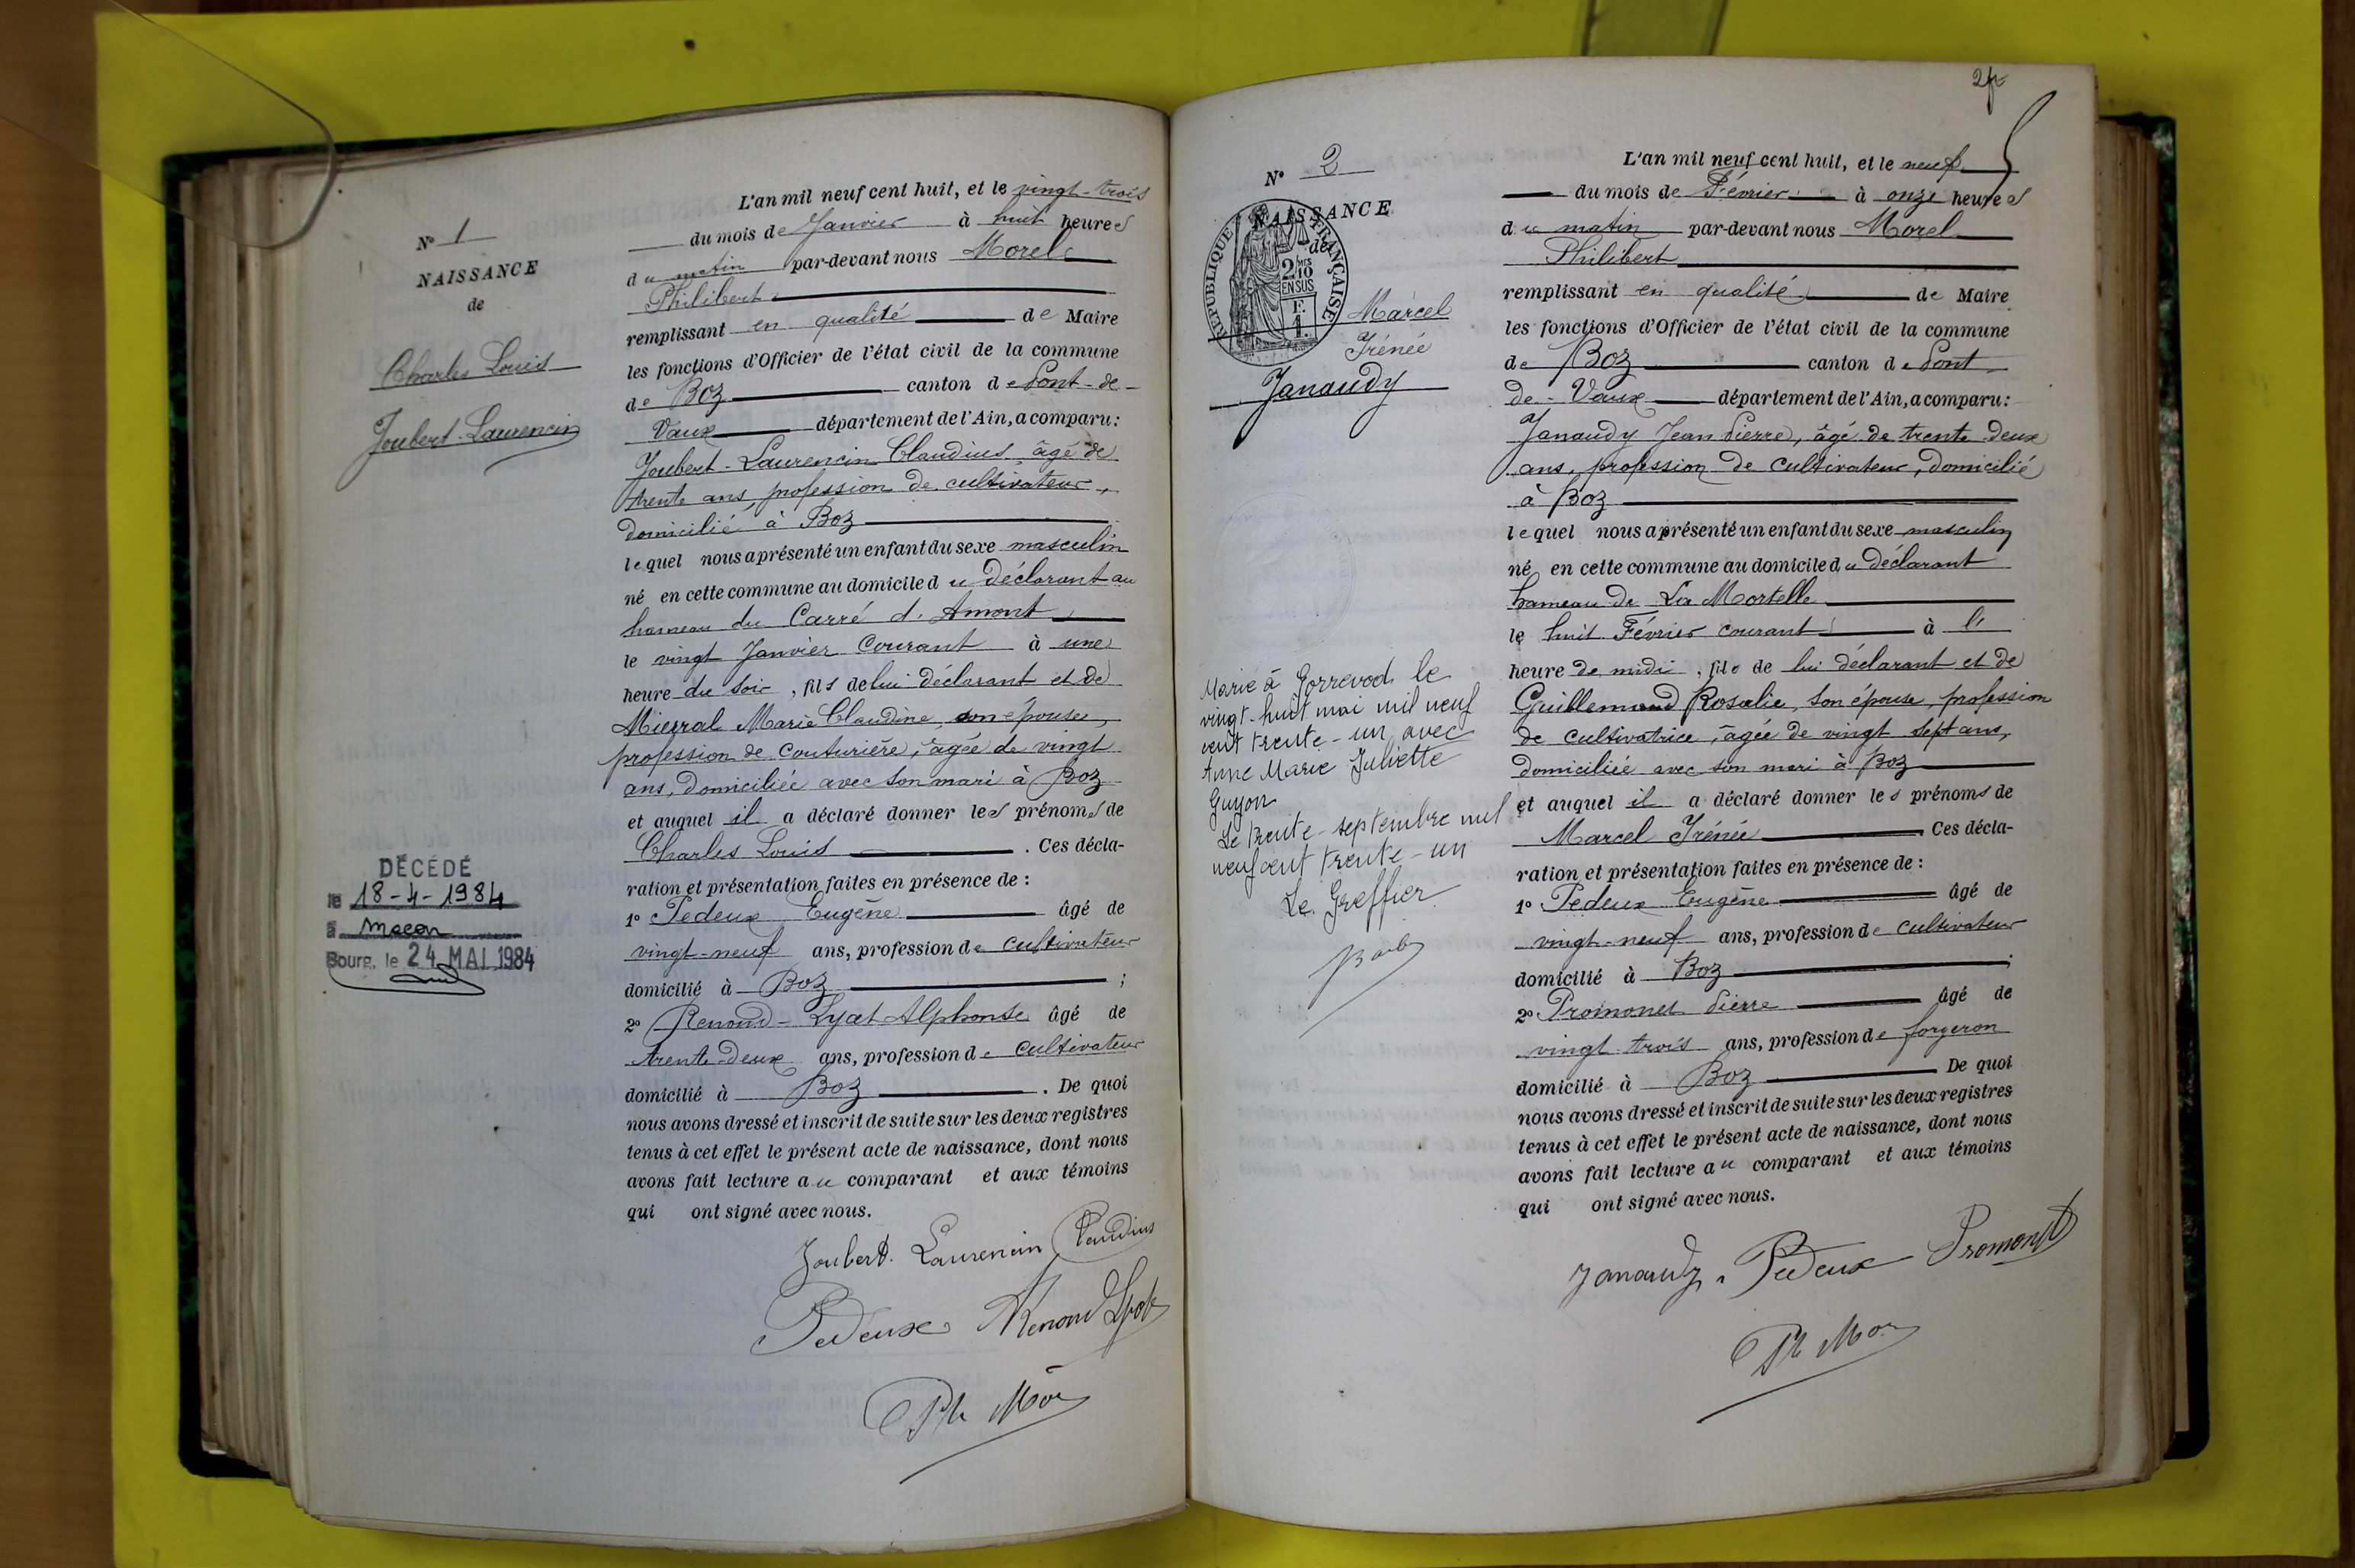 N° 1
NAISSANCE
de
Charles Louis
Joubert-Laurencin
DÉCÉDÉ
le 18-4-1984
à Macon
Bourg, le 24 MAI 1984
L'an mil neuf cent huit, et le vingt-trois
du mois de Janvier à huit heures
du matin par-devant nous Morel
Philibert
remplissant en qualité de Maire
les fonctions d'Officier de l'état civil de la commune
de Boz canton de Pont-de-
Vaux département de l'Ain, a comparu:
Joubert-Laurencin Claudius âgé de
trente ans, profession de cultivateur,
domicilié à Boz
lequel nous a présenté un enfant du sexe masculin
né en cette commune au domicile du Déclarant au
hameau du Carré d'Amont
le vingt Janvier Courant à une
heure du soir, fils de lui déclarant et de
Marie Claudine son épouse,
profession de couturière, âgée de vingt
ans, domiciliée avec son mari à Boz
et auquel il a déclaré donner les prénoms de
Charles Louis . Ces décla-
ration et présentation faites en présence de :
1° Pedeux Eugène âgé de
vingt-neuf ans, profession de cultivateur
domicilié à Boz ;
2° Renoud-Lyat Alphonse âgé de
trente-deux ans, profession de cultivateur
domicilié à Boz . De quoi
nous avons dressé et inscrit de suite sur les deux registres
tenus à cet effet le présent acte de naissance, dont nous
avons fait lecture au comparant et aux témoins
qui ont signé avec nous.
Joubert. Laurencin Claudius
Pedeux Renoud Lyat
Ph Mor
2
N° 2
NAISSANCE
de
RÉPUBLIQUE FRANÇAISE
2/10 EN SUS
F.
1.
Marcel
Irénée
Janaudy
Marié à Gorrevod le
vingt-huit mai mil neuf
cent trente-un avec
Anne Marie Juliette
Guyon
Le trente septembre mil
neuf cent trente-un
Le Greffier
L'an mil neuf cent huit, et le neuf
du mois de Février à onze heures
du matin par-devant nous Morel
Philibert
remplissant en qualité de Maire
les fonctions d'Officier de l'état civil de la commune
de Boz canton de Pont
de-Vaux département de l'Ain, a comparu:
Janaudy Jean Pierre, âgé de trente deux
ans, profession de cultivateur, domicilié
à Boz
lequel nous a présenté un enfant du sexe masculin
né en cette commune au domicile du Déclarant
hameau de La Mortelle
le huit Février courant à l'
heure de midi, fils de lui déclarant et de
Guillemaud Rosalie, son épouse, profession
de cultivatrice, âgée de vingt sept ans,
domiciliée avec son mari à Boz
et auquel il a déclaré donner les prénoms de
Marcel Irénée . Ces décla-
ration et présentation faites en présence de :
1° Pedeux Eugène âgé de
vingt-neuf ans, profession de cultivateur
domicilié à Boz ;
2° Promonet Pierre âgé de
vingt-trois ans, profession de forgeron
domicilié à Boz De quoi
nous avons dressé et inscrit de suite sur les deux registres
tenus à cet effet le présent acte de naissance, dont nous
avons fait lecture au comparant et aux témoins
qui ont signé avec nous.
Janaudy Pedeux Promonet
Ph Mor